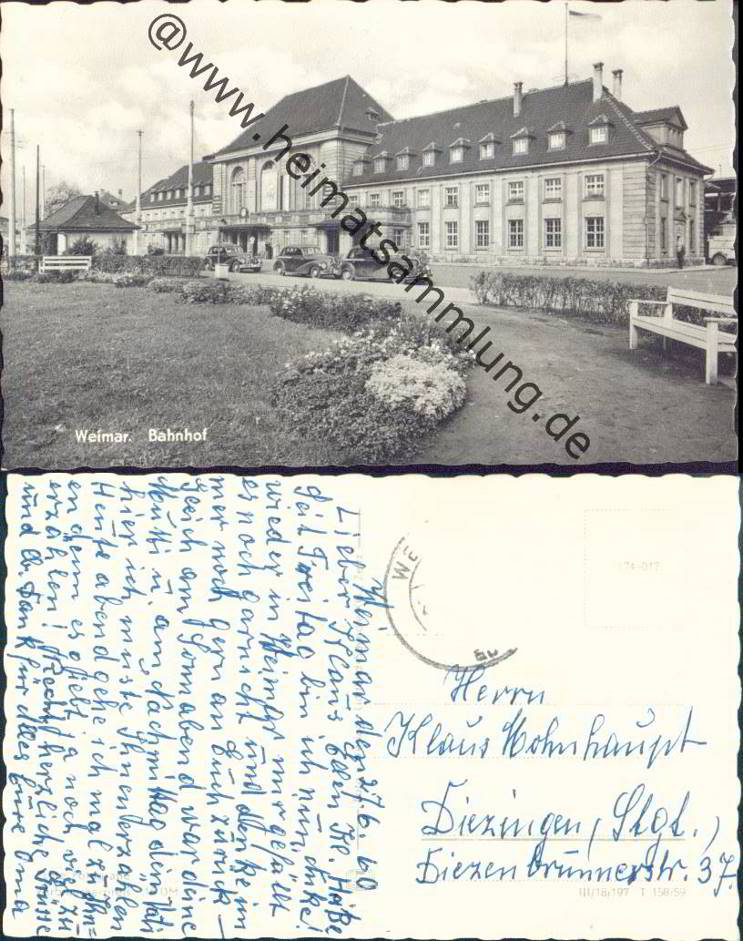 @www.heimatsammlung.de
Weimar. Bahnhof
Weimar, den 27.6.60
Lieber Klaus
seit Freitag bin ich nun
wieder in Weimar mir gefällt
es noch garnicht und denke im
mer noch gern an Euch zurück
Gleich am Sonnabend war deine
Mutti u. am Nachmittag den Vati
hier ich musste Ihnen erzählen
Heute abend gehe ich mal zu Ihn=
en denn es giebt ja noch viel zu
erzählen! Recht herzliche Grüsse
und Dank für alles Eure Oma
Herrn
Klaus Hohnhaupt
Diezingen, Stgt.,
Diezenbrunnerstr. 37.
174-017
III/18/197 T 158/59